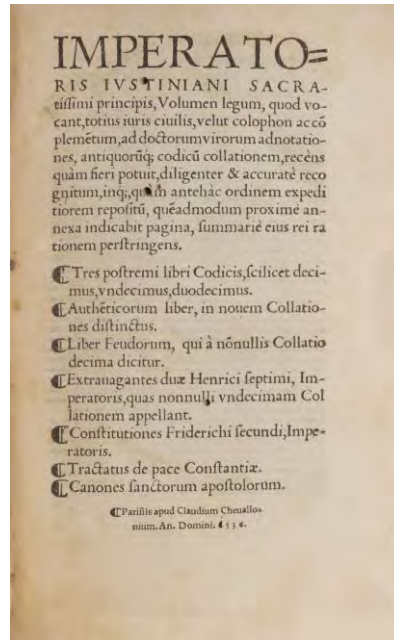 IMPERATO=
RIS IVSTINIANI SACRA-
tissimi principis, Volumen legum, quod vo-
cant, totius iuris ciuilis, velut colophon ac cō
plemētum, ad doctorum virorum adnotatio-
nes, antiquorūq; codicū collationem, recèns
quàm fieri potuit, diligenter & accuratè reco
gnitum, inq;, quàm antehàc ordinem expedi
tiorem repositū, quēadmodum proximè an-
nexa indicabit pagina, summariè eius rei ra
tionem perstringens.
¶Tres postremi libri Codicis, scilicet deci-
mus, vndecimus, duodecimus.
¶Authēticorum liber, in nouem Collatio-
nes distinctus.
¶Liber Feudorum, qui à nōnullis Collatio
decima dicitur.
¶Extrauagantes duæ Henrici septimi, Im-
peratoris, quas nonnulli vndecimam Col
lationem appellant.
¶Constitutiones Friderichi secundi, Impe-
ratoris.
¶Tractatus de pace Constantiæ.
¶Canones sanctorum apostolorum.
¶Parisiis apud Claudium Cheuallo-
nium. An. Domini. 1536.